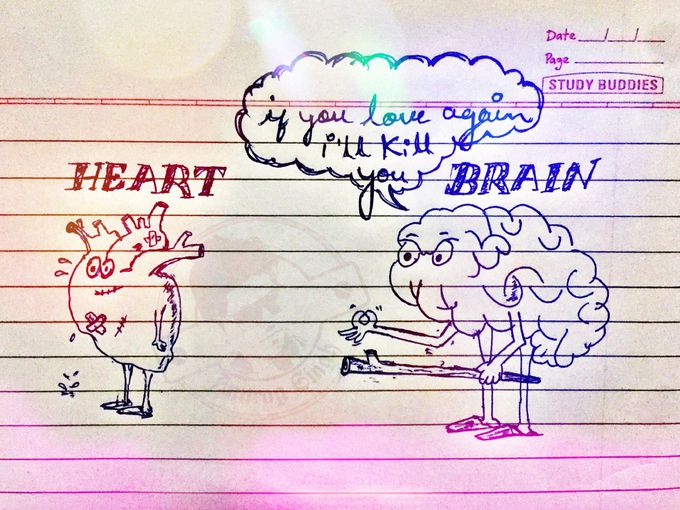 Date __/__/__
Page ______
STUDY BUDDIES
if you love again
i'll kill
you
HEART
BRAIN